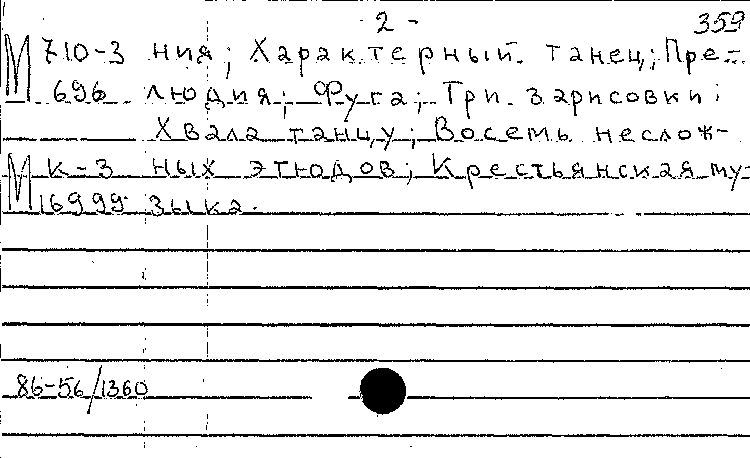 - 2 - 359
М 710-3 ния; Характерный танец; Пре-
696 людия; Фуга; Три зарисовки;
Хвала танцу; Восемь неслож-
М К-3 ных этюдов; Крестьянская му-
16999 зыка.
86-56/1360